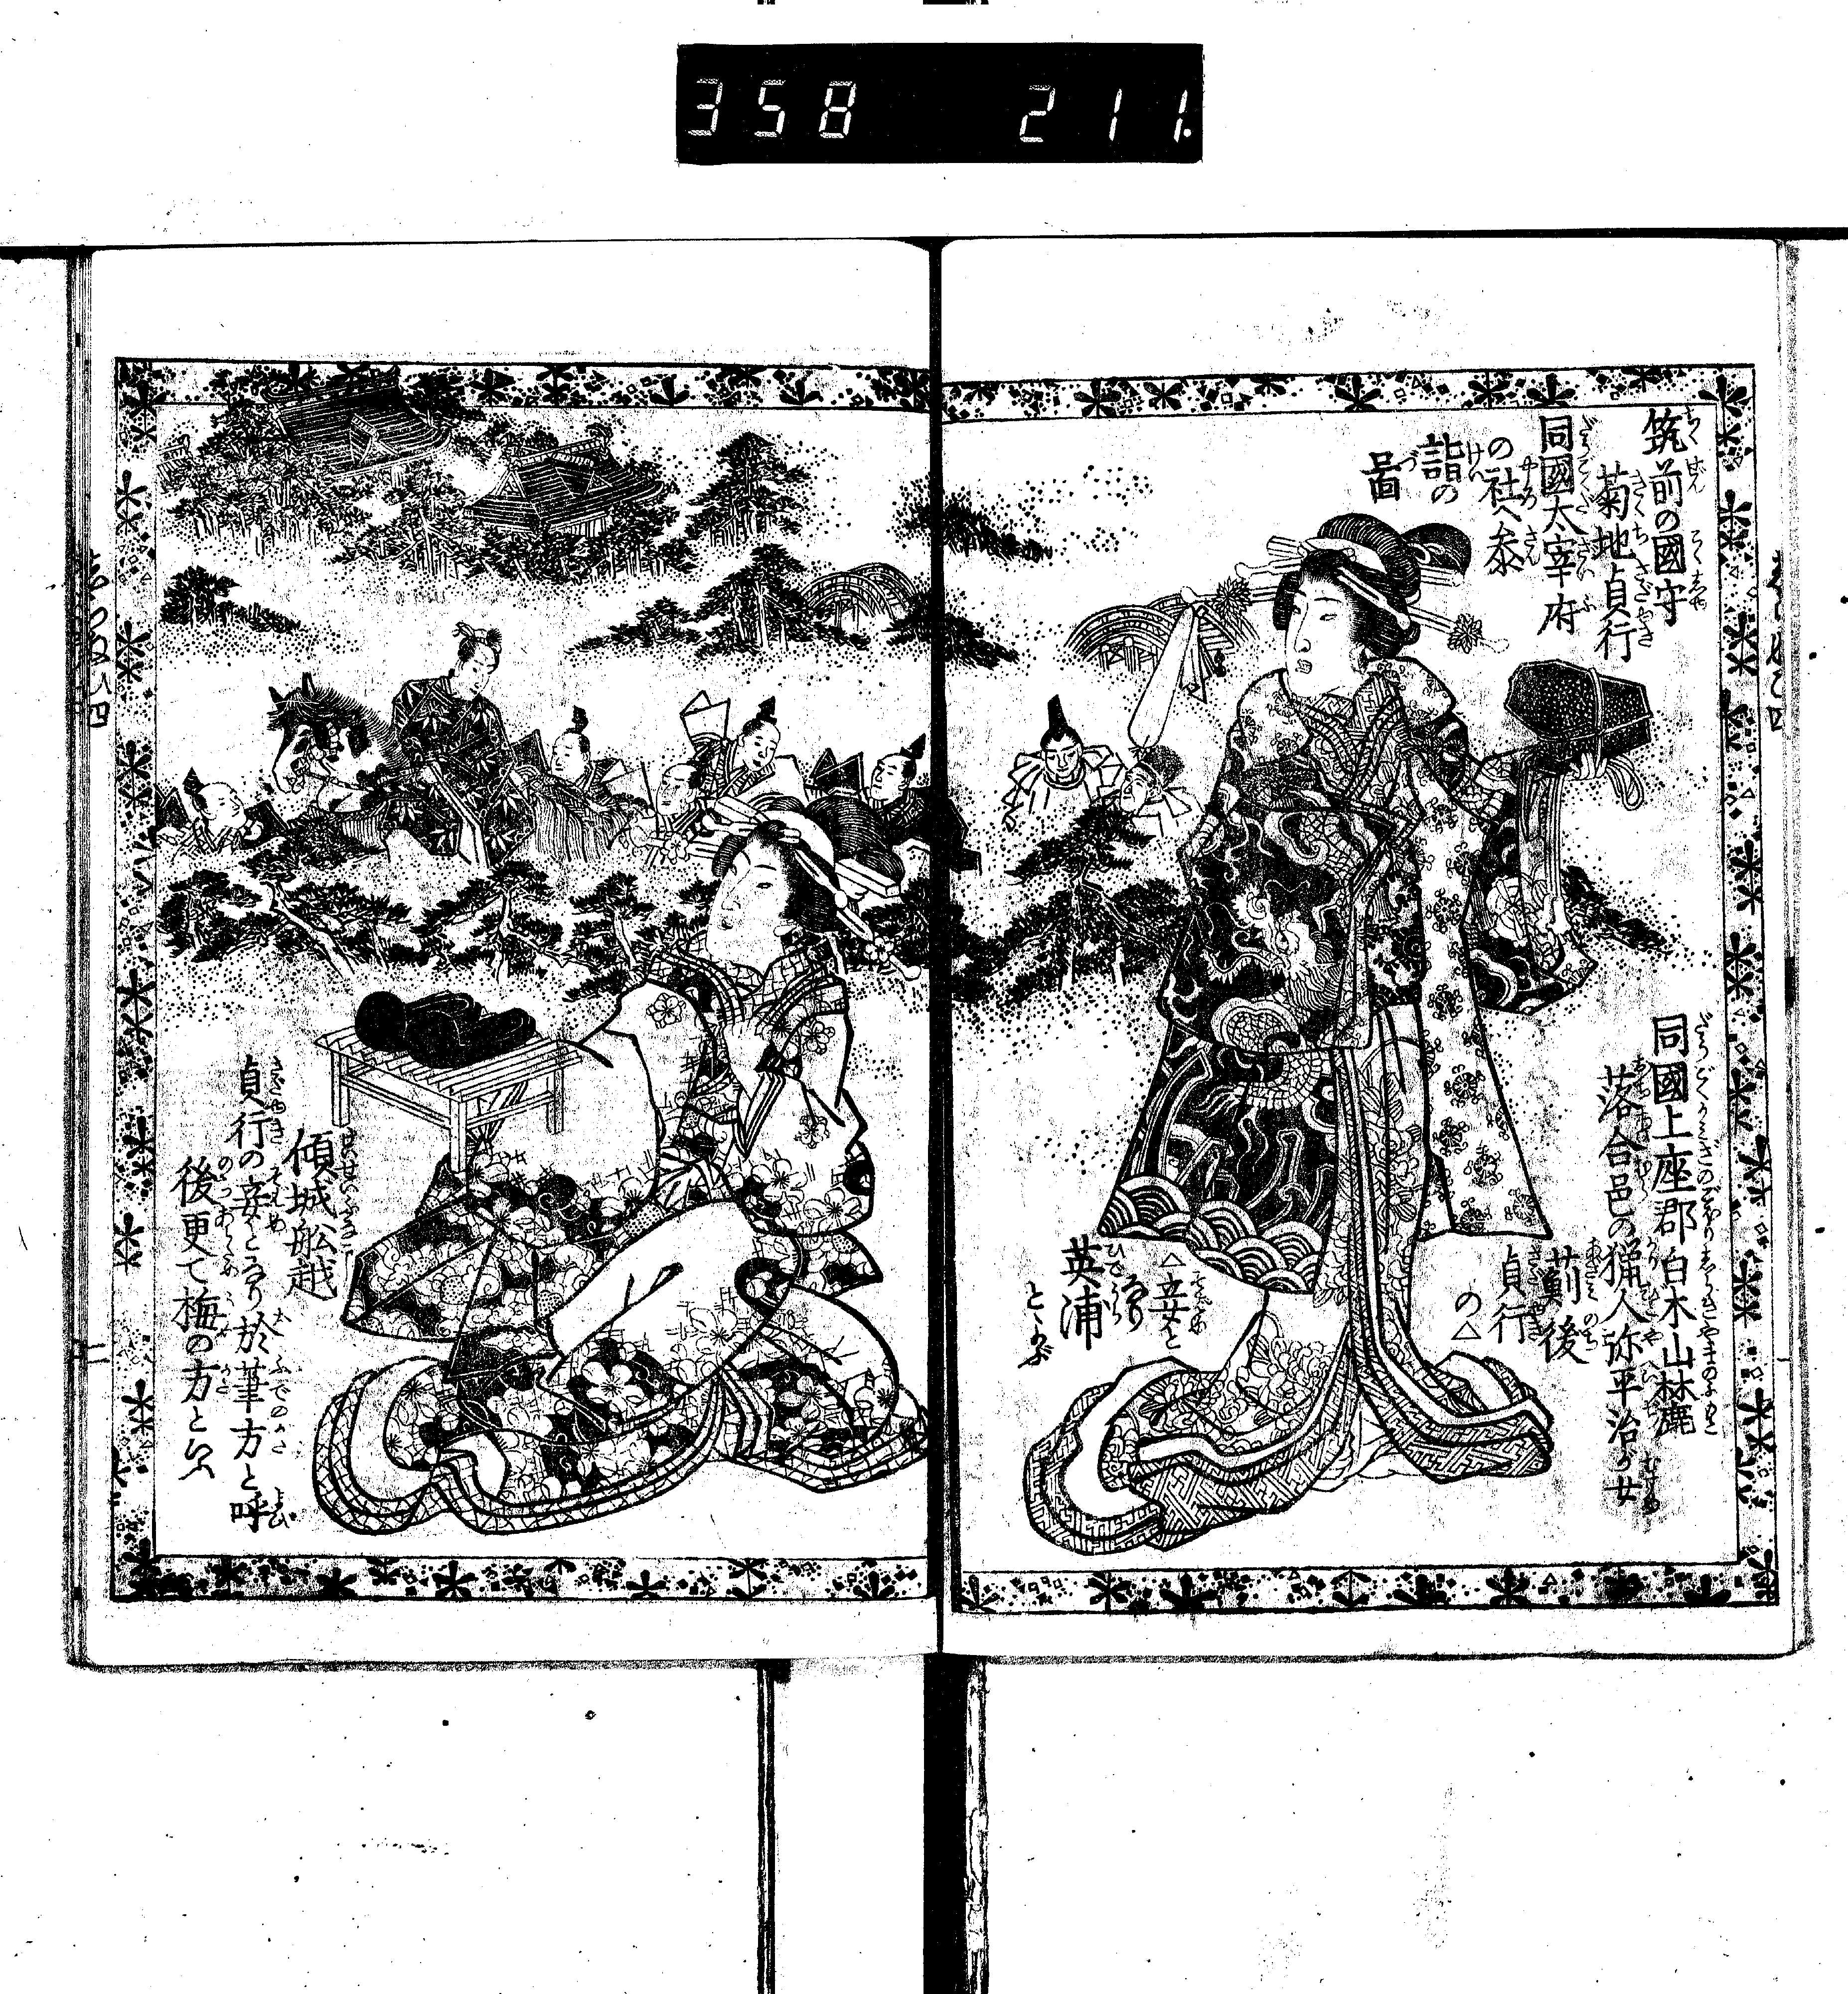 358 211.
筑前の國守
菊地貞行
同國太宰府
の社へ参
詣の
圖
同國上座郡白木山林麓
落合邑の猟人弥平治が女
薊後
貞行
の△
△妾と
なり
英浦
とよぶ
傾城舩越
貞行の妾となり於筆方と呼
後更て梅の方といふ